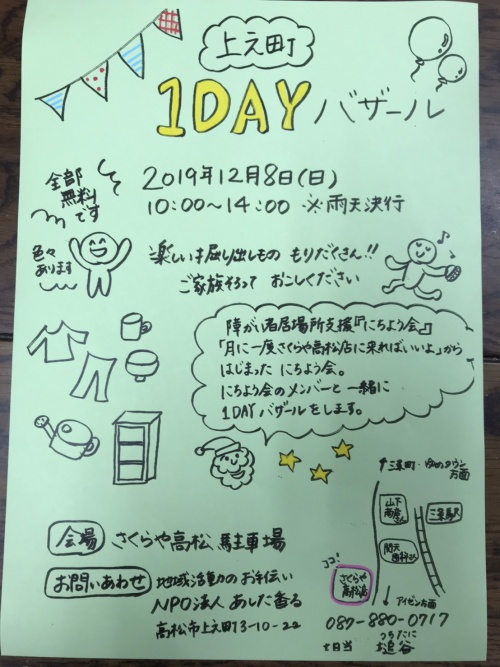 上之町
1DAYバザール
全部
無料
です
2019年12月8日(日)
10:00〜14:00 ※雨天決行
色々
あります
楽しい掘り出しもの もりだくさん!!
ご家族そろって おこしください
障がい者居場所支援『にちよう会』
「月に一度さくらや高松店に来ればいいよ」から
はじまった にちよう会。
にちよう会のメンバーと一緒に
1DAYバザールをします。
↑三条町・ゆめタウン
方面
山下
商店
さん
三条駅
関天
歯科さん
ココ!
さくらや
高松店
↓アイゼン方面
会場 さくらや高松 駐車場
お問いあわせ 地域活動のお手伝い
NPO法人 あした香る
高松市上之町3-10-22
087-880-0717
つちたに
担当 槌谷